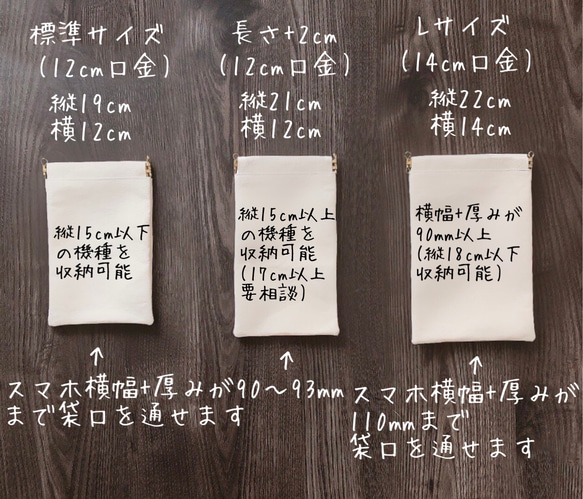 標準サイズ
(12cm口金)
縦19cm
横12cm
縦15cm以下
の機種を
収納可能
長さ+2cm
(12cm口金)
縦21cm
横12cm
縦15cm以上
の機種を
収納可能
(17cm以上
要相談)
↑
↑
スマホ横幅+厚みが90～93mm
まで袋口を通せます
Lサイズ
(14cm口金)
縦22cm
横14cm
横幅+厚みが
90mm以上
(縦18cm以下
収納可能)
↑
スマホ横幅+厚みが
110mmまで
袋口を通せます